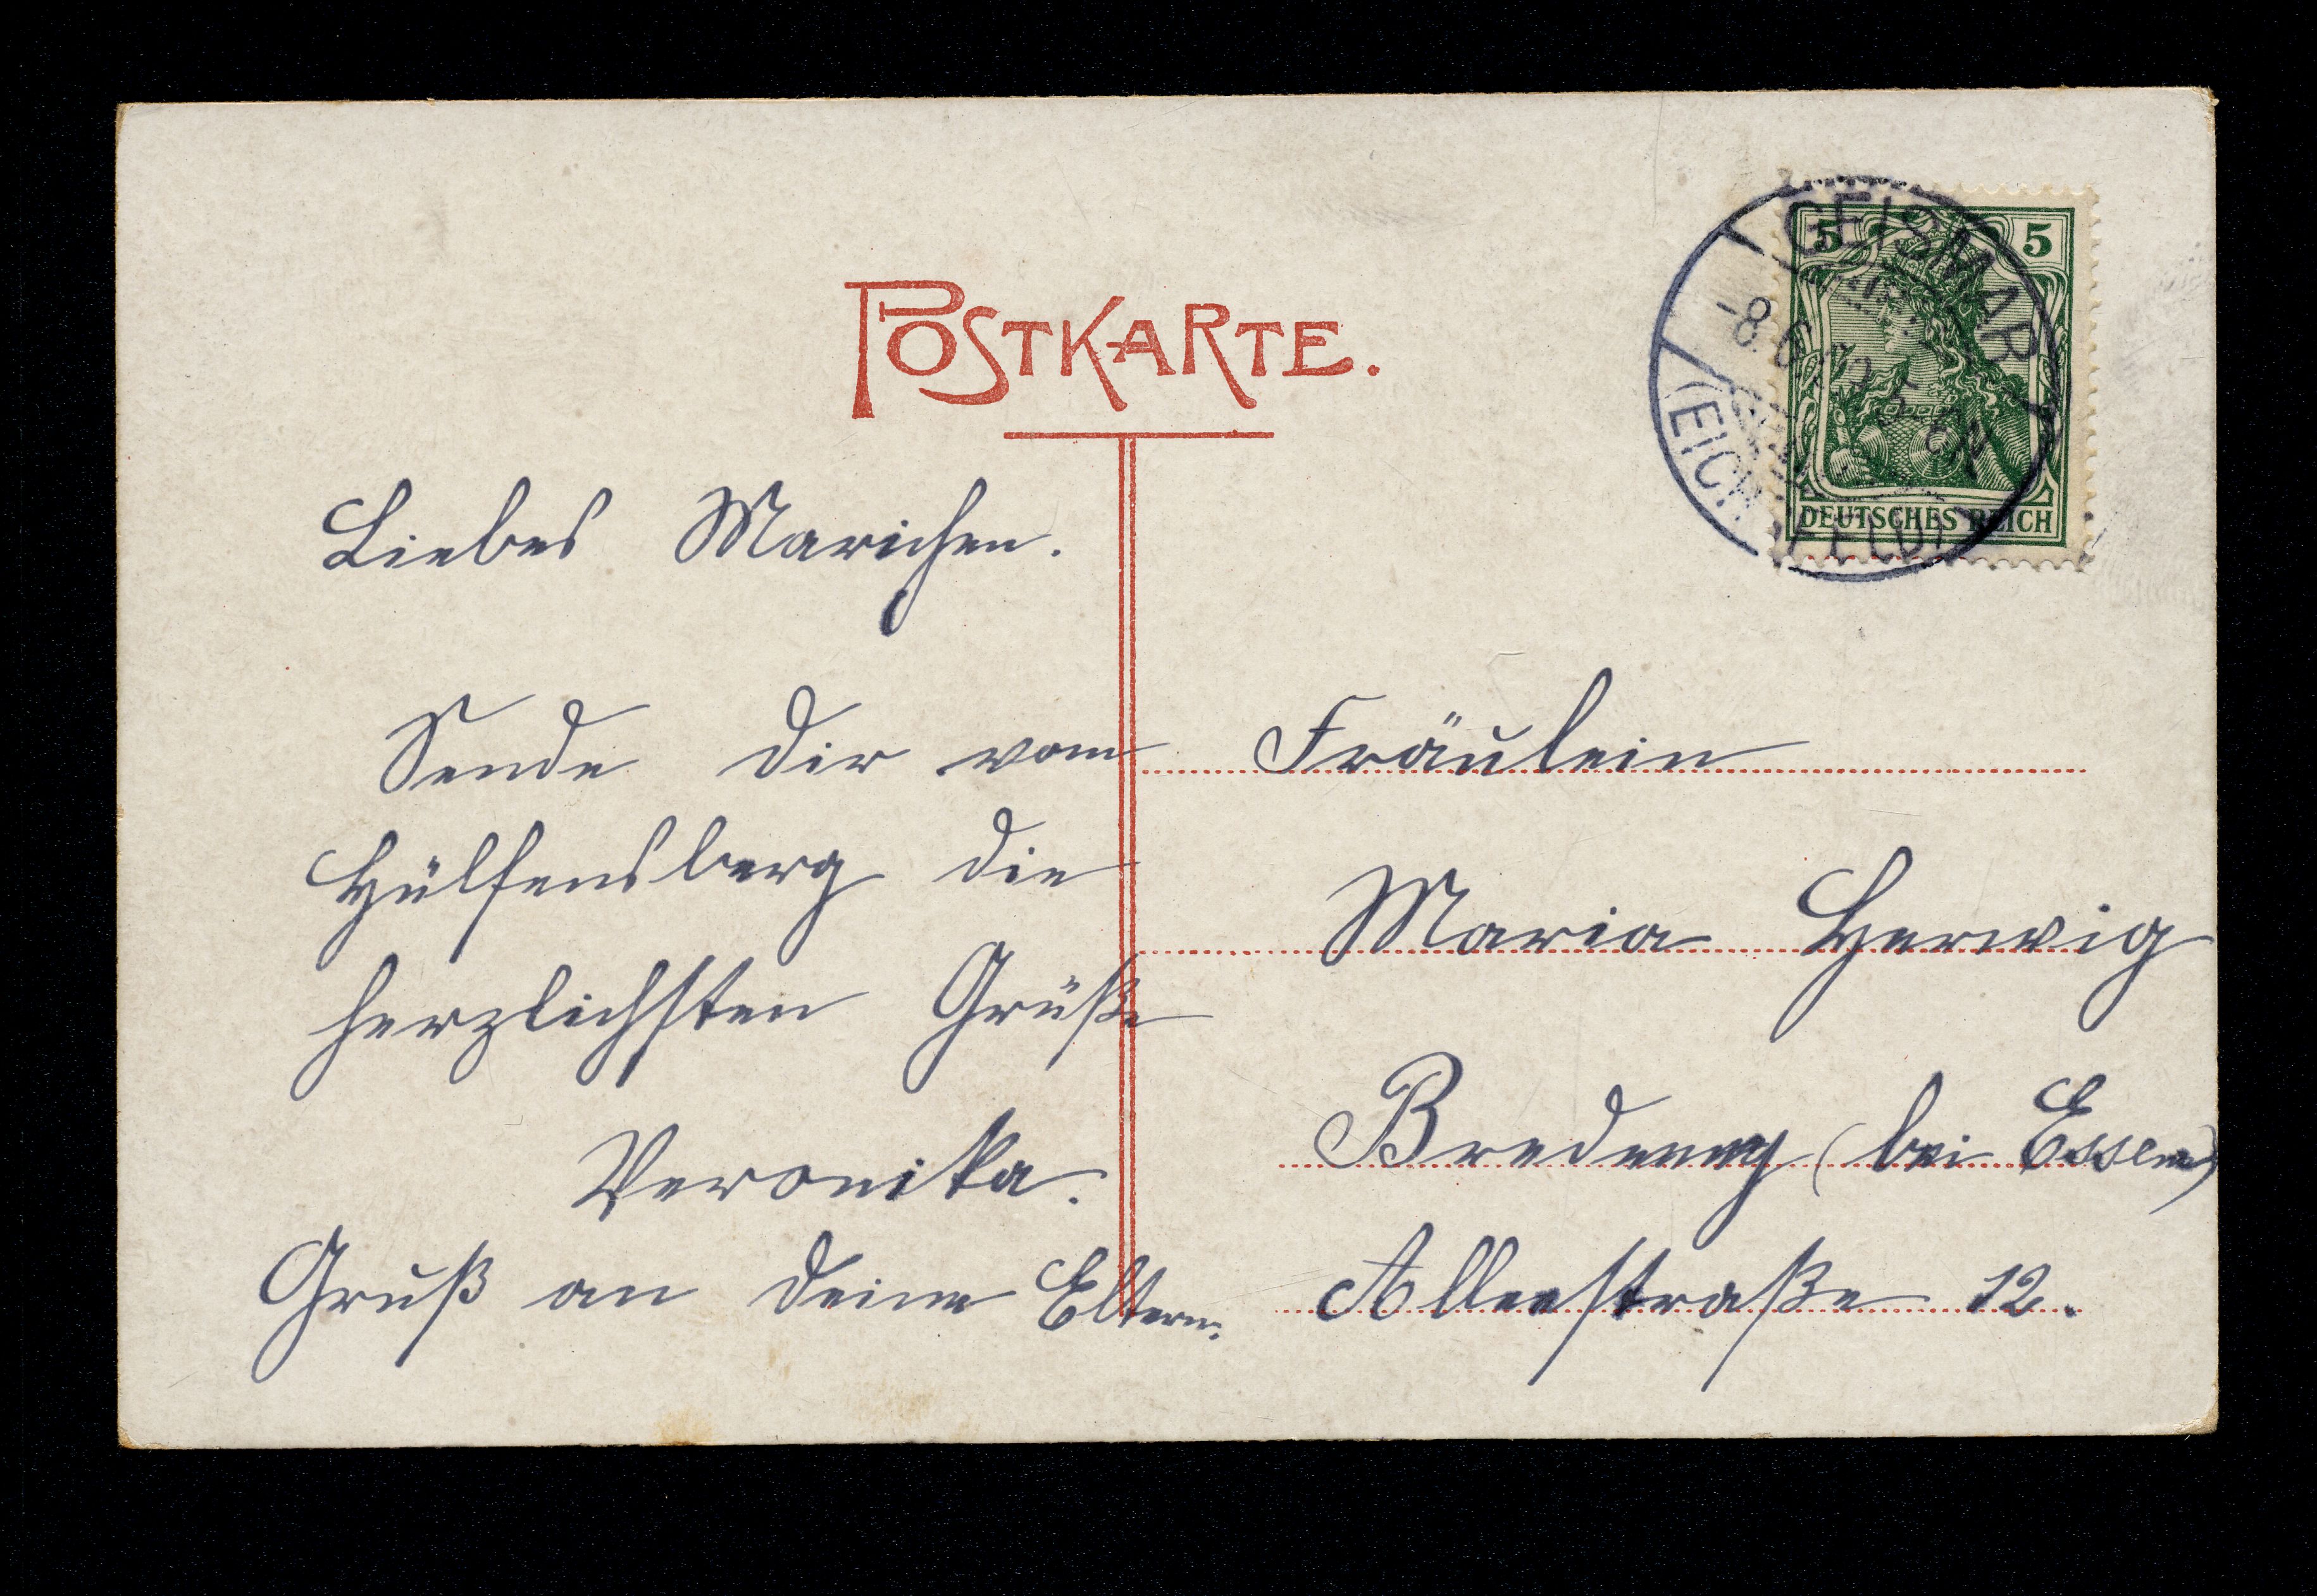 POSTKARTE.
Liebes Marichen.
Sende Dir vom
Hülfensberg die
herzlichsten Grüße
Veronika.
Gruß an Deine Eltern.
GEISMAR
-8.6.
5-6N
(EICHSFELD)
5 5
DEUTSCHES REICH
Fräulein
Maria Herwig
Bredeney (bei Essen)
Alleestraße 12.